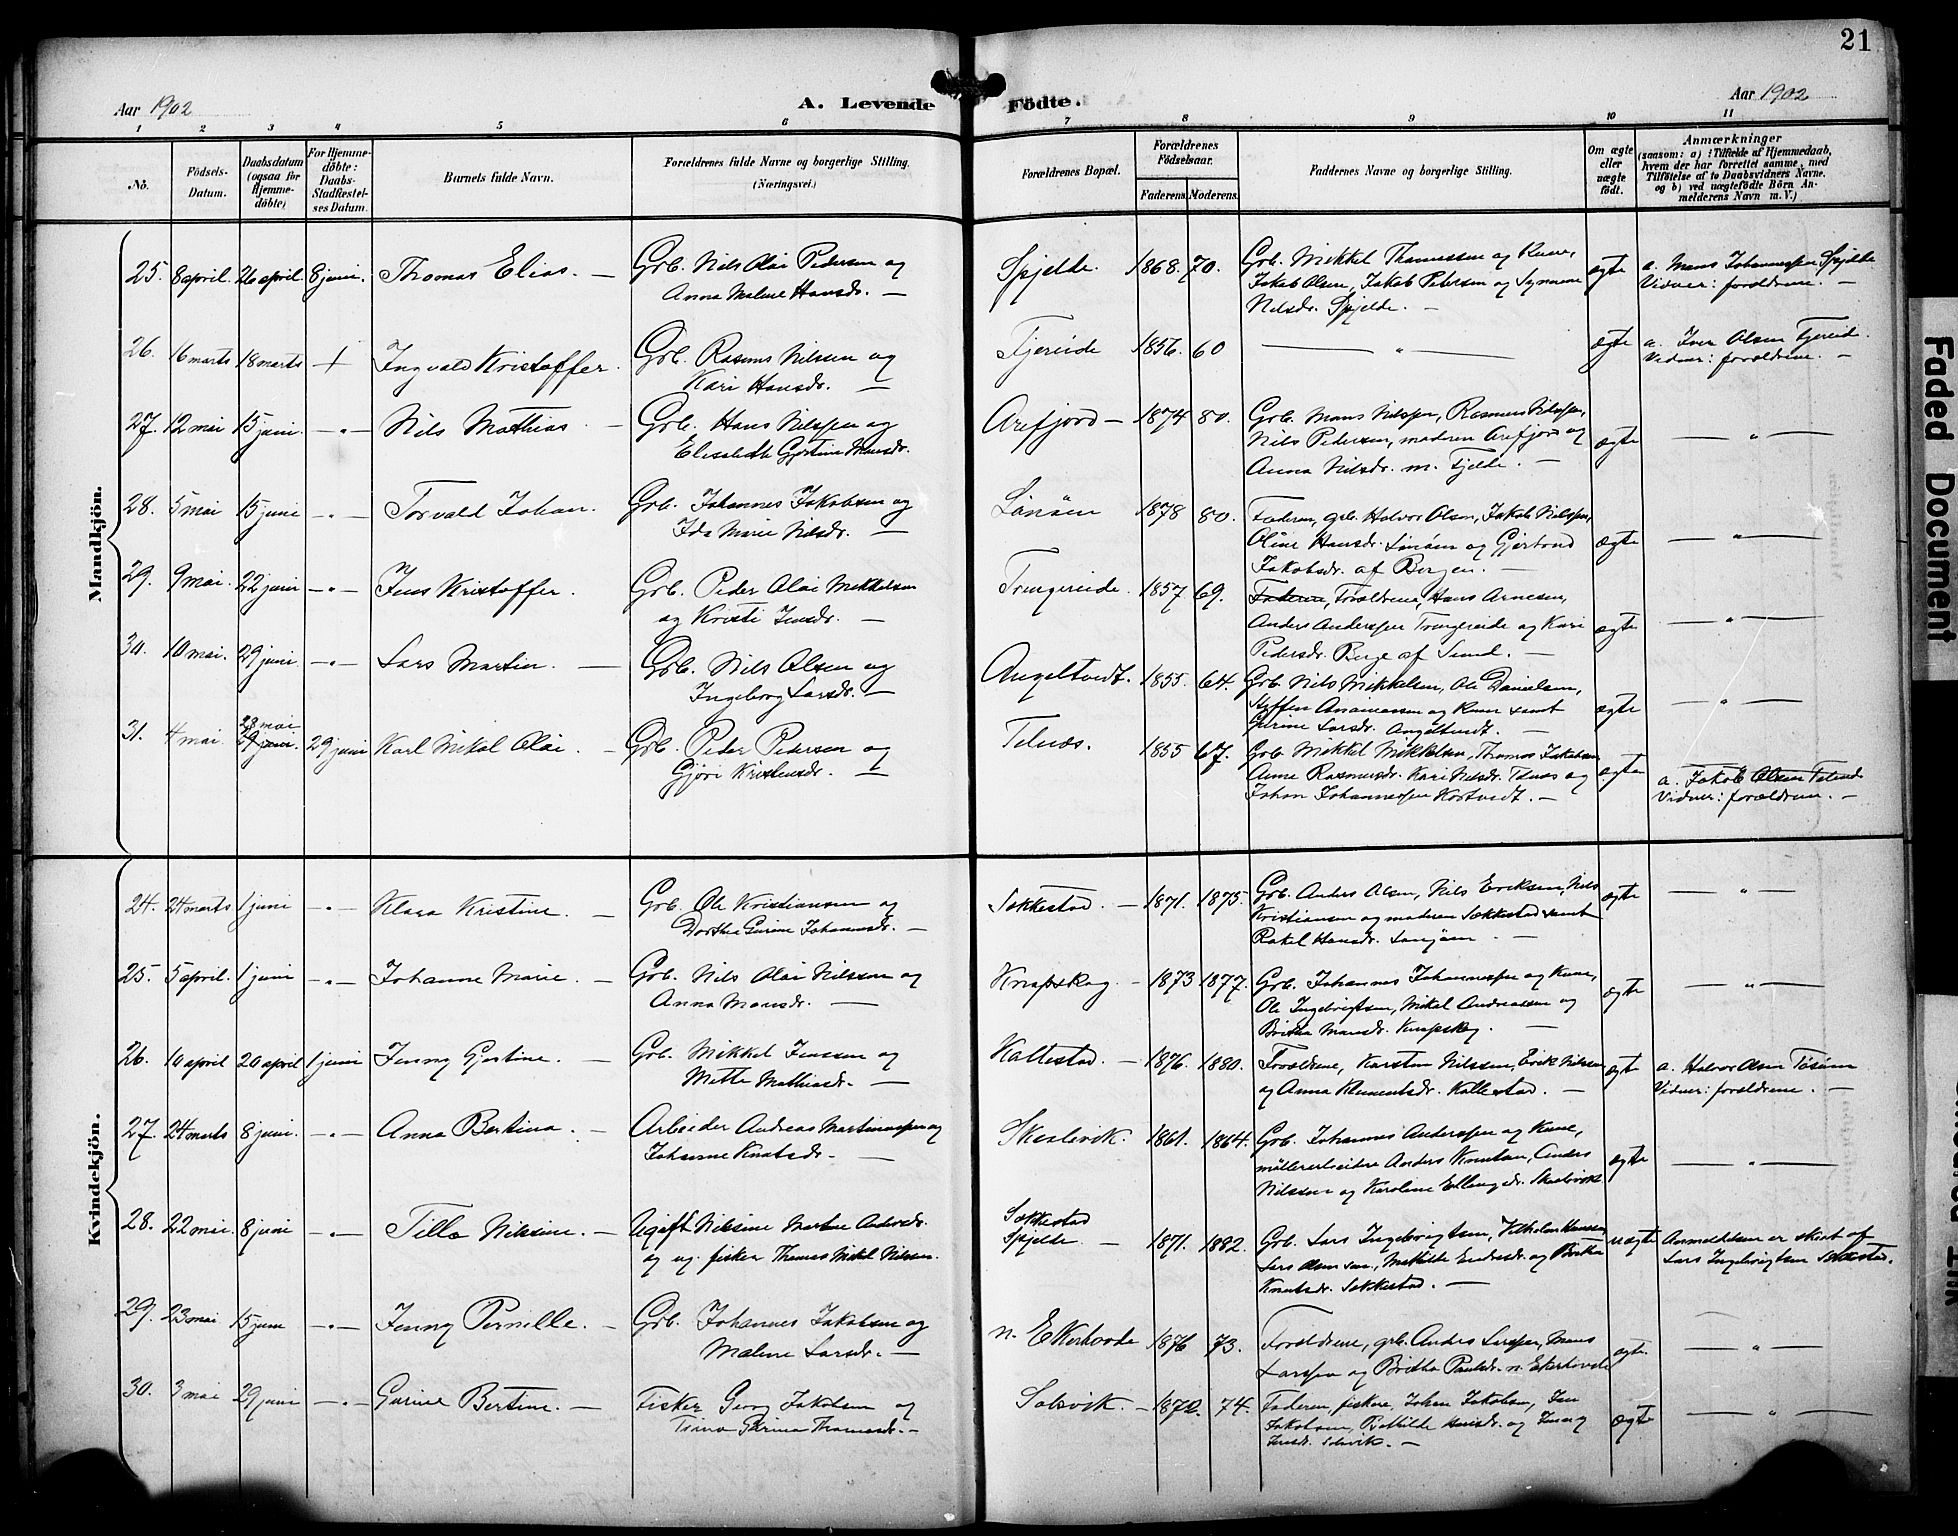 21
Aar 1902
A. Levende Födte.
Aar 1902
1 2 3 4 5 6 7 8 9 10 11
No.
Födsels-Datum.
Daabsdatum (ogsaa för Hjemme-döbte)
For Hjemme-döbte: Daabs-Stadfæstel-ses Datum.
Barnets fulde Navn.
Forældrenes fulde Navne og borgerlige Stilling.
(Næringsvei.)
Forældrenes Bopæl.
Forældrenes Födselsaar.
Faderens. Moderens.
Faddernes Navne og borgerlige Stilling.
Om ægte eller uægte födt.
Anmærkninger
(saasom: a) i Tilfælde af Hjemmedaab, hvem der har forrettet samme, med Tilföielse af to Daabsvidners Navne, og b) ved uægtefödte Börn An-melderens Navn m. V.)
Mandkjön.
25. 8 april. 26 april. 8 juni. Thomas Elias. — Grb. Nils Olai Pedersen og
Anna Malene Hansdr. —
Spjelde. 1868. 70. Grb. Mikkel Thomassen og Kone,
Jakob Olsen, Jakob Petersen og Synneve
Nilsdr. Spjelde. —
ægte a. Mons Johannessen Spjelde
Vidner: forældrene. —
26. 16 marts 18 marts + Ingvald Kristoffer. Grb. Rasmus Nilsen og
Kari Hansdr. —
Fjereide 1856. 60 — " — ægte a. Iver Olsen Fjereid.
Vidner: forældrene. —
27. 12 mai 15 juni. — " — Nils Mathias. — Grb. Hans Nilssen og
Elisabeth Gjertine Monsdr.
Arefjord — 1874 80. Grb. Mons Nilssen, Rasmus Nilssen,
Nils Pedersen, moderen Arefjord og
Anna Nilsdr. m. Fjelde. —
ægte — " —
28. 5 mai 15 juni — " — Torvald Johan. Grb. Johannes Jakobsen og
Ida Marie Nilsdr. —
1878 80. Faderen, grb. Halvor Olsen, Jakob Nilssen,
Oline Hansdr. og Gjertrud
Jakobsdr. af Bergen. —
ægte — " —
29. 9 mai. 22 juni — " — Jens Kristoffer. Grb. Peder Olai Mikkelsen
og Kristi Jensdr. —
Trengereide. 1857 69. Faderen, Forældrene, Hans Arnesen,
Anders Anderssen Trengereide og Kari
Pedersdr. Berge af Sund. —
ægte — " —
30. 10 mai. 29 juni — " — Lars Martin. — Grb. Nils Olsen og
Ingeborg Larsdr. —
Angeltvedt. 1855. 64. Grb. Nils Mikkelsen, Ole Danielsen,
Steffen Ananiassen og Kone samt
Gurine Larsdr. Angeltvedt. —
ægte — " —
31. 4 mai. 28 mai
29 juni. 29 juni Karl Mikal Olai. — Grb. Peder Pedersen og
Gjøri Kristensdr. —
Telnæs. 1855 67. Grb. Mikkel Mikkelsen, Thomas Jakobsen
Anne Rasmusdr. Kari Nilsdr. Telnæs og
Johan Johannessen Kortvedt. —
ægte a. Jakob Olsen Telnæs
Vidner: forældrene. —
Kvindekjön.
24. 24 marts 1 juni — " — Klara Kristine. — Grb. Ole Kristiansen og
Dorthea Gurine Johannesdr. —
Sekkestad. — 1871. 1875. Grb. Anders Olsen, Nils Eriksen, Nils
Kristiansen og moderen Sekkestad samt
Rakel Hansdr. —
ægte — " —
25. 5 april. 1 juni — " — Johanne Marie. — Grb. Nils Olai Nilssen og
Anna Monsdr. —
Knapskog. — 1873 1877. Grb. Johannes Johannessen og Kone,
Ole Ingebrigtsen, Mikal Andreassen og
Britha Monsdr. Knapskog. —
ægte — " —
26. 10 april 20 april 1 juni Jenny Gjertine. — Grb. Mikkel Jenssen og
Mette Mathiasdr. —
Kallestad. — 1876. 1880. Forældrene, Karsten Nilssen, Erik Nilssen
og Anna Klementsdr. Kallestad. —
ægte a. Halvor Olsen Tøsøen
Vidner: forældrene. —
27. 24 marts 8 juni. — " — Anna Bertina. — Arbeider Andreas Martinussen og
Johanne Knutsdr. —
Skaalevik. 1861. 1864. Grb. Johannes Anderssen og Kone,
møllerarbeidere Anders Knutsen, Anders
Nilssen og Karoline Ellingsdr. Skaalevik
ægte — " —
28. 22 mai. 8 juni — " — Tilla Nilsine. — Ugift Nilsine Martine Andersdr.
og ug. fisker Thomas Mikal Nilsen.
Sekkestad
Spjelde. — 1871. 1882. Grb. Lars Ingebrigtsen, Vilhelm Hansen
Lars Olsen sen., Mathilde Endresdr. og Britha
Knutsdr. Sekkestad. —
uægte Anmeldelsen er skrevt af
Lars Ingebrigtsen Sekkestad.
29. 23 mai 15 juni — " — Jenny Pernille. — Grb. Johannes Jakobsen og
Malene Larsdr. —
n. Ekerhovde 1876 73. Forældrene, grb. Anders Larssen, Mons
Larssen og Britha Paulsdr. n. Ekerhovde
ægte. — " —
30. 3 mai 29 juni — " — Gurine Bertine. — Fisker Georg Jakobsen og
Thomasdr. —
Solsvik. — 1872. 74. Faderen, fiskere, Johan Jakobsen, Jens
Jakobsen, Bothilde Hansdr. og
Jensdr. Solsvik. —
ægte — " —
Faded Document